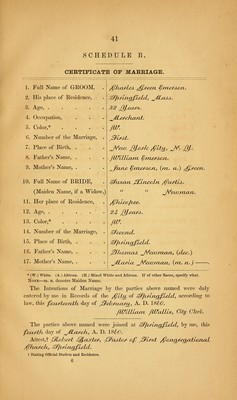 41
SCHEDULE B.
CERTIFICATE OF MARRIAGE.
1. Full Name of GROOM, Charles Green Emerson.
2. His place of Residence, Springfield, Mass.
3. Age, 32 Years.
4. Occupation, Merchant.
5. Color,* W.
6. Number of the Marriage, First.
7. Place of Birth, New York City, N. Y.
8. Father's Name, William Emerson.
9. Mother's Name, Jane Emerson, (m. n.) Green.
10. Full Name of BRIDE, Susan Lincoln Curtis.
(Maiden Name, if a Widow,) " " Newman.
11. Her place of Residence, Chicopee.
12. Age, 22 Years.
13. Color,* W.
14. Number of the Marriage, Second.
15. Place of Birth, Springfield.
16. Father's Name, Thomas Newman, (dec.)
17. Mother's Name, Maria Newman, (m. n.) ——
* (W.) White. (A.) African. (M.) Mixed White and African. If of other Races, specify what.
NOTE—M. N. denotes Maiden Name.
The Intentions of Marriage by the parties above named were duly
entered by me in Records of the City of Springfield, according to
law, this fourteenth day of February, A. D. 18
William Wallis, City Clerk.
The parties above were joined at Springfield, by me, this
fourth day of March, A. D. 18
Attest,† Robert Baxter, Pastor of First Congregational
Church, Springfield.
† Stating Official Station and Residence.
6